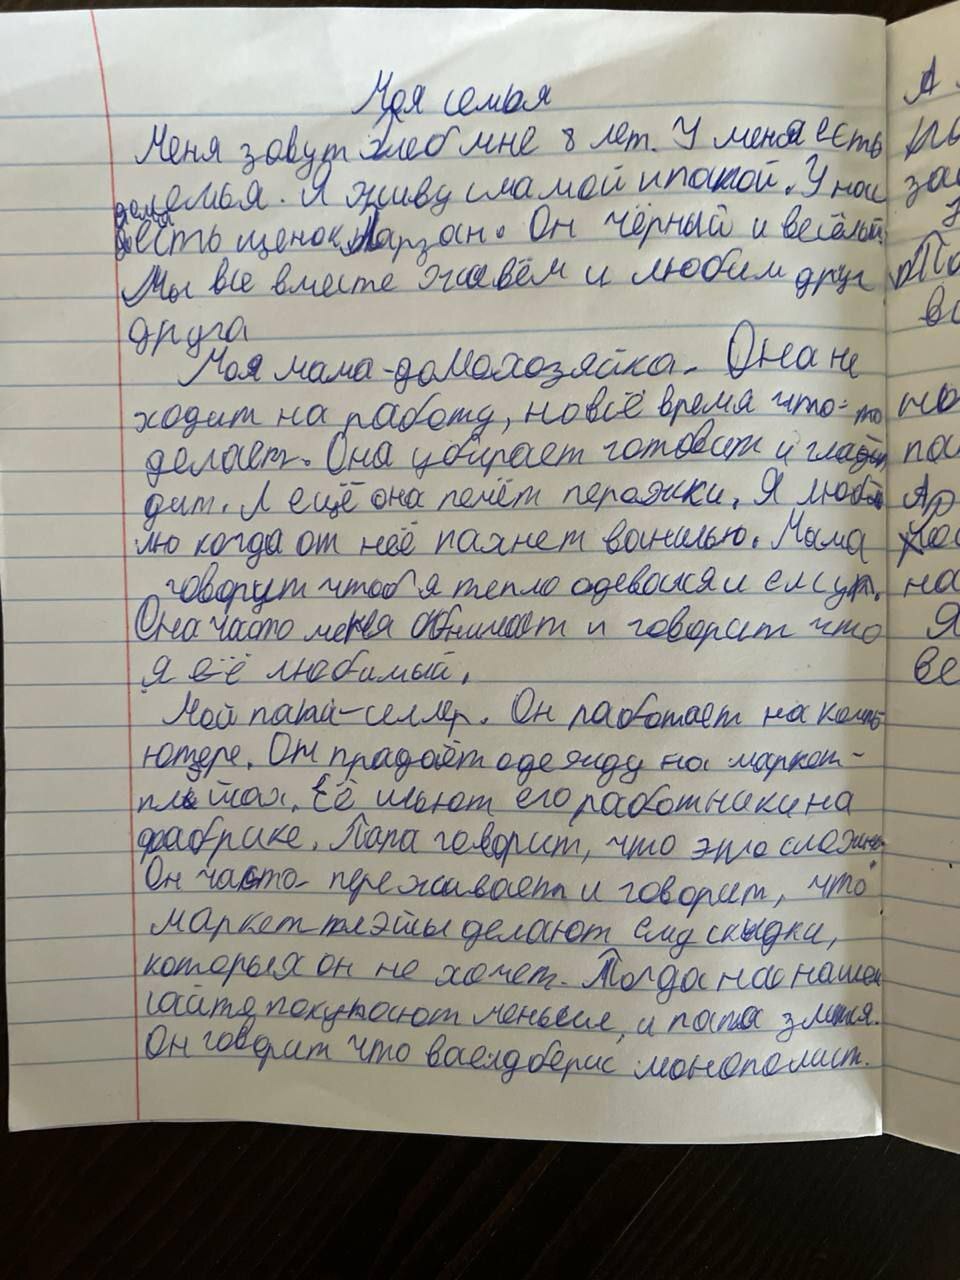 Моя семья
Меня зовут Глеб мне 8 лет. У меня есть
семья. Я живу смамой ипапой. У нас
дома
есть щенок Тарзан. Он чёрный и весёлый.
Мы все вместе живём и любим друг
друга
Моя мама-домохозяйка. Она не
ходит на работу, новсё время что-то
делает. Она убирает готовит и гла
дит. А ещё она печёт перожки. Я люб
лю когда от неё пахнет ванилью. Мама
говорит чтоб я тепло одевался и ел суп.
Она часто меня обнимает и говорит что
я её любимый.
Мой папа-селлер. Он работает на компь
ютере. Он прадаёт одежду на маркет-
плэйсах. Её шьют его работники на
фабрике. Папа говорит, что это сложно
Он часто переживает и говорит, что
маркетплэйсы делают ему скидки,
которыя он не хочет. Тогда на нашем
сайте покупают меньше, и папа злится.
Он говорит что ваелдберис монополист.
А
за
По
во
но
па
Ар
на
Я
ве